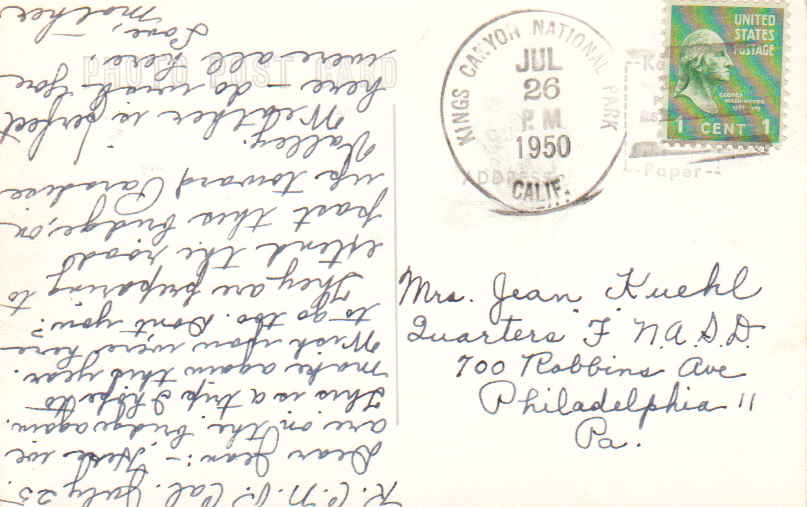 PHOTO POST CARD
K. C. N. P. Cal. July 25.
Dear Jean:- Here we
are on the bridge again.
This is a trip I hope to
make again this year.
Wish you were here
to go too. Dont you?
They are preparing to
extend the road
past this bridge, on
up toward Paradise
Valley.
Weather is perfect
here - do wish you
were all here.
Love,
Mother
KINGS CANYON NATIONAL PARK
JUL
26
P.M.
1950
CALIF.
ADDRESS
UNITED
STATES
POSTAGE
GEORGE
WASHINGTON
1 CENT 1
Paper
Mrs. Jean Kuehl
Quarters "F" N.A.S.D.
700 Robbins Ave
Philadelphia 11
Pa.